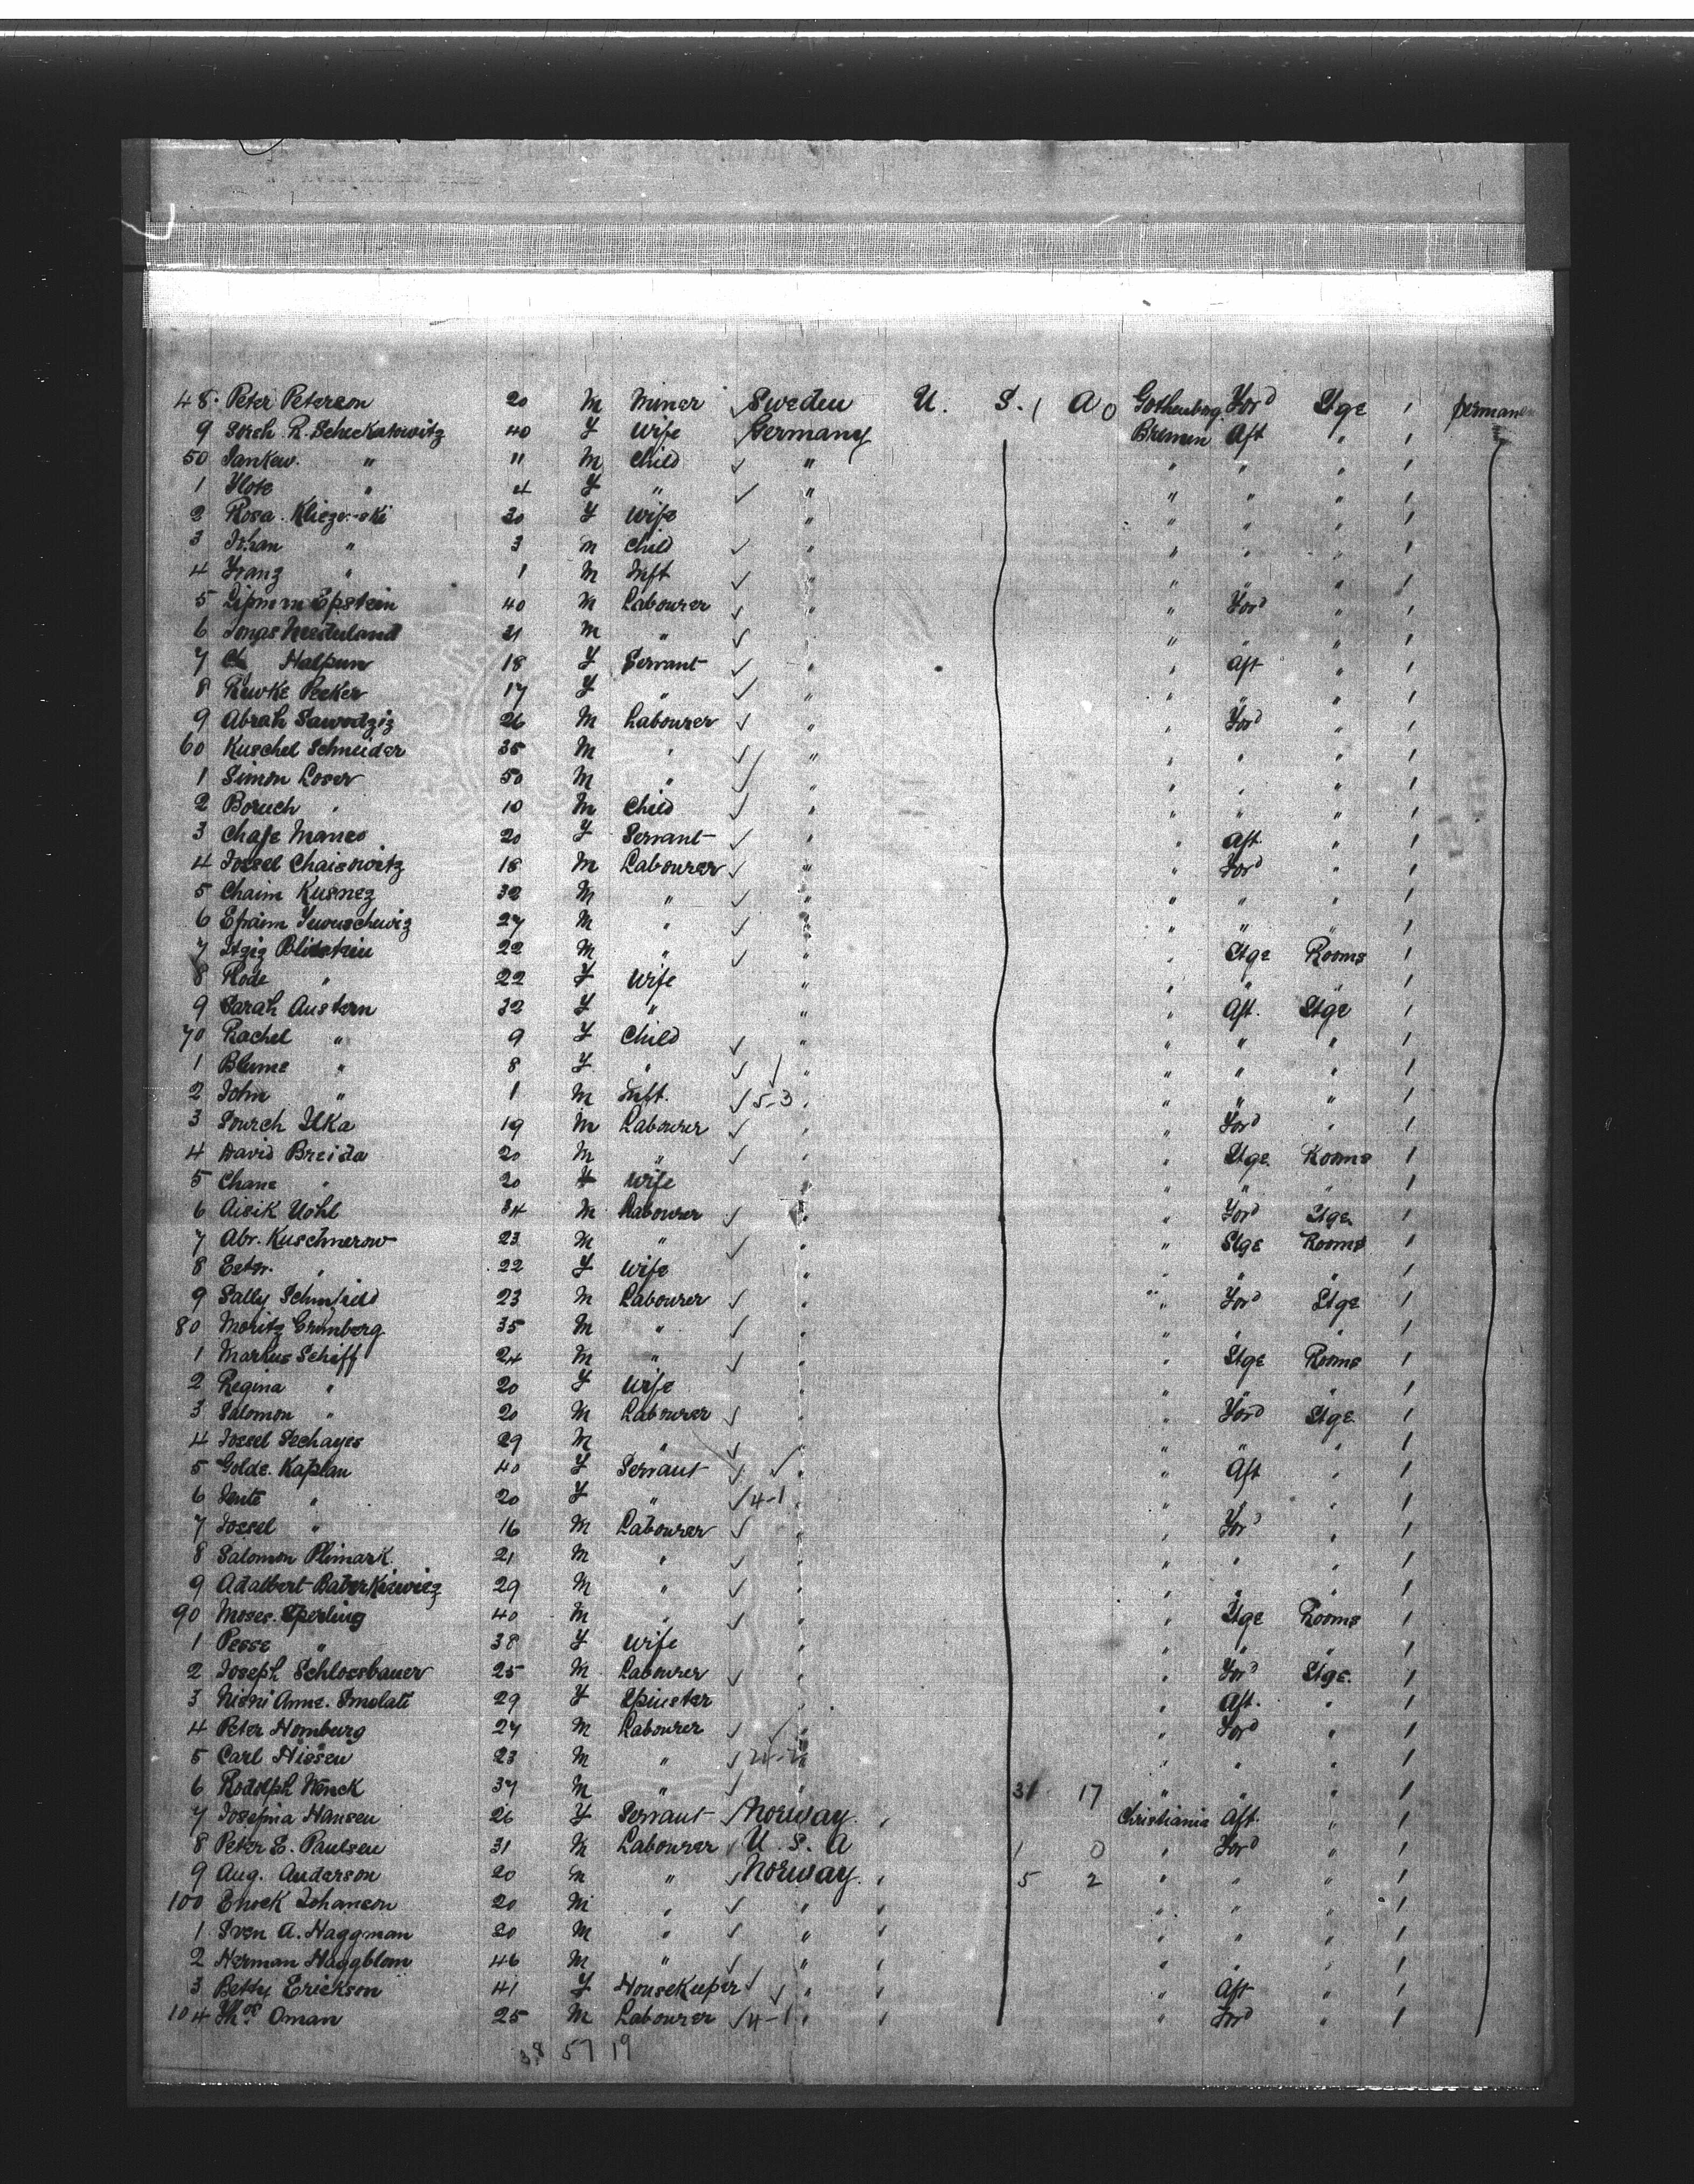 48 Peter Peterson 20 M Miner Sweden U. S. 1 A 0 Gothenburg Ford Stge 1 permanen
9 Sorch R. Scheckatowitz 40 F Wife Germany Bremen Aft " 1
50 Jankew. " 11 M Child " " " " 1
1 " 4 F " " " " " 1
2 Rosa 30 F Wife " " " " 1
3 Johan " 3 M Child " " " " 1
4 Franz " 1 M Inft " " " " 1
5 Lipmm Epstein 40 M Labourer " " Ford " 1
6 Jonas 21 M " " " " " 1
7 Halpern 18 F Servant " " Aft " 1
8 Rewke Pecker 17 F " " " " " 1
9 Abrah Sawodziz 26 M Labourer " " Ford " 1
60 Kuschel Schneider 35 M " " " " " 1
1 Simon Loser 50 M " " " " " 1
2 Boruch " 10 M Child " " " " 1
3 Chaje Manes 20 F Servant " " Aft. " 1
4 Jossel Chaisowitz 18 M Labourer " " Ford " 1
5 Chaim Kusnez 32 M " " " " " 1
6 Efraim 27 M " " " " " 1
7 Itzig Blitstein 22 M " " " Stge Rooms 1
8 Rode " 22 F Wife " " " " 1
9 Sarah Austern 32 F " " " Aft. Stge 1
70 Rachel " 9 F Child " " " " 1
1 Blume " 8 F " " " " " 1
2 John " 1 M Inft. 5-3 " " " " 1
3 Sourch Ilka 19 M Labourer " " Ford " 1
4 David Breida 20 M " " " Stge Rooms 1
5 Chane " 20 F Wife " " " " 1
6 Aisik Uohl 34 M Labourer " " Ford Stge 1
7 Abr. Kuschnerow 23 M " " " Stge Rooms 1
8 Ester. " 22 F Wife " " " " 1
9 Sally 23 M Labourer " " Ford Stge 1
80 Moritz Grünberg 35 M " " " " " 1
1 Markus Schiff 24 M " " " Stge Rooms 1
2 Regina " 20 F Wife " " " " 1
3 Salomon " 20 M Labourer " " Ford Stge 1
4 Jossel Sechayes 29 M " " " " " 1
5 Golde. Kaplan 40 F Servant " " Aft " 1
6 " 20 F " 4-1 " " " " 1
7 Jossel " 16 M Labourer " " Ford " 1
8 Salomon Plimark 21 M " " " " " 1
9 Adalbert Baberkiewicz 29 M " " " " " 1
90 Moses. Sperling 40 M " " " Stge Rooms 1
1 Pesse " 38 F Wife " " " " 1
2 Joseph Schlossbauer 25 M Labourer " " Ford Stge. 1
3 Anne. Smolati 29 F Spinster " " Aft. " 1
4 Peter Homburg 27 M Labourer " " Ford " 1
5 Carl Nissen 23 M " " " " " 1
6 Rodolph Wenck 37 M " " 31 17 " " " 1
7 Josepia Hansen 26 F Servant Norway " Christiania Aft. " 1
8 Peter E. Paulsen 31 M Labourer U. S. A 1 0 " Ford " 1
9 Aug. Anderson 20 M " Norway " 5 2 " " " 1
100 Enock Johanson 20 M " " " " " " 1
1 Sven A. Haggman 20 M " " " " " " 1
2 Herman Haggblom 46 M " " " " " " 1
3 Betty Erickson 41 F Housekeeper " " " Aft " 1
104 Thos Oman 25 M Labourer 4-1 " " " Ford " 1
38 57 19